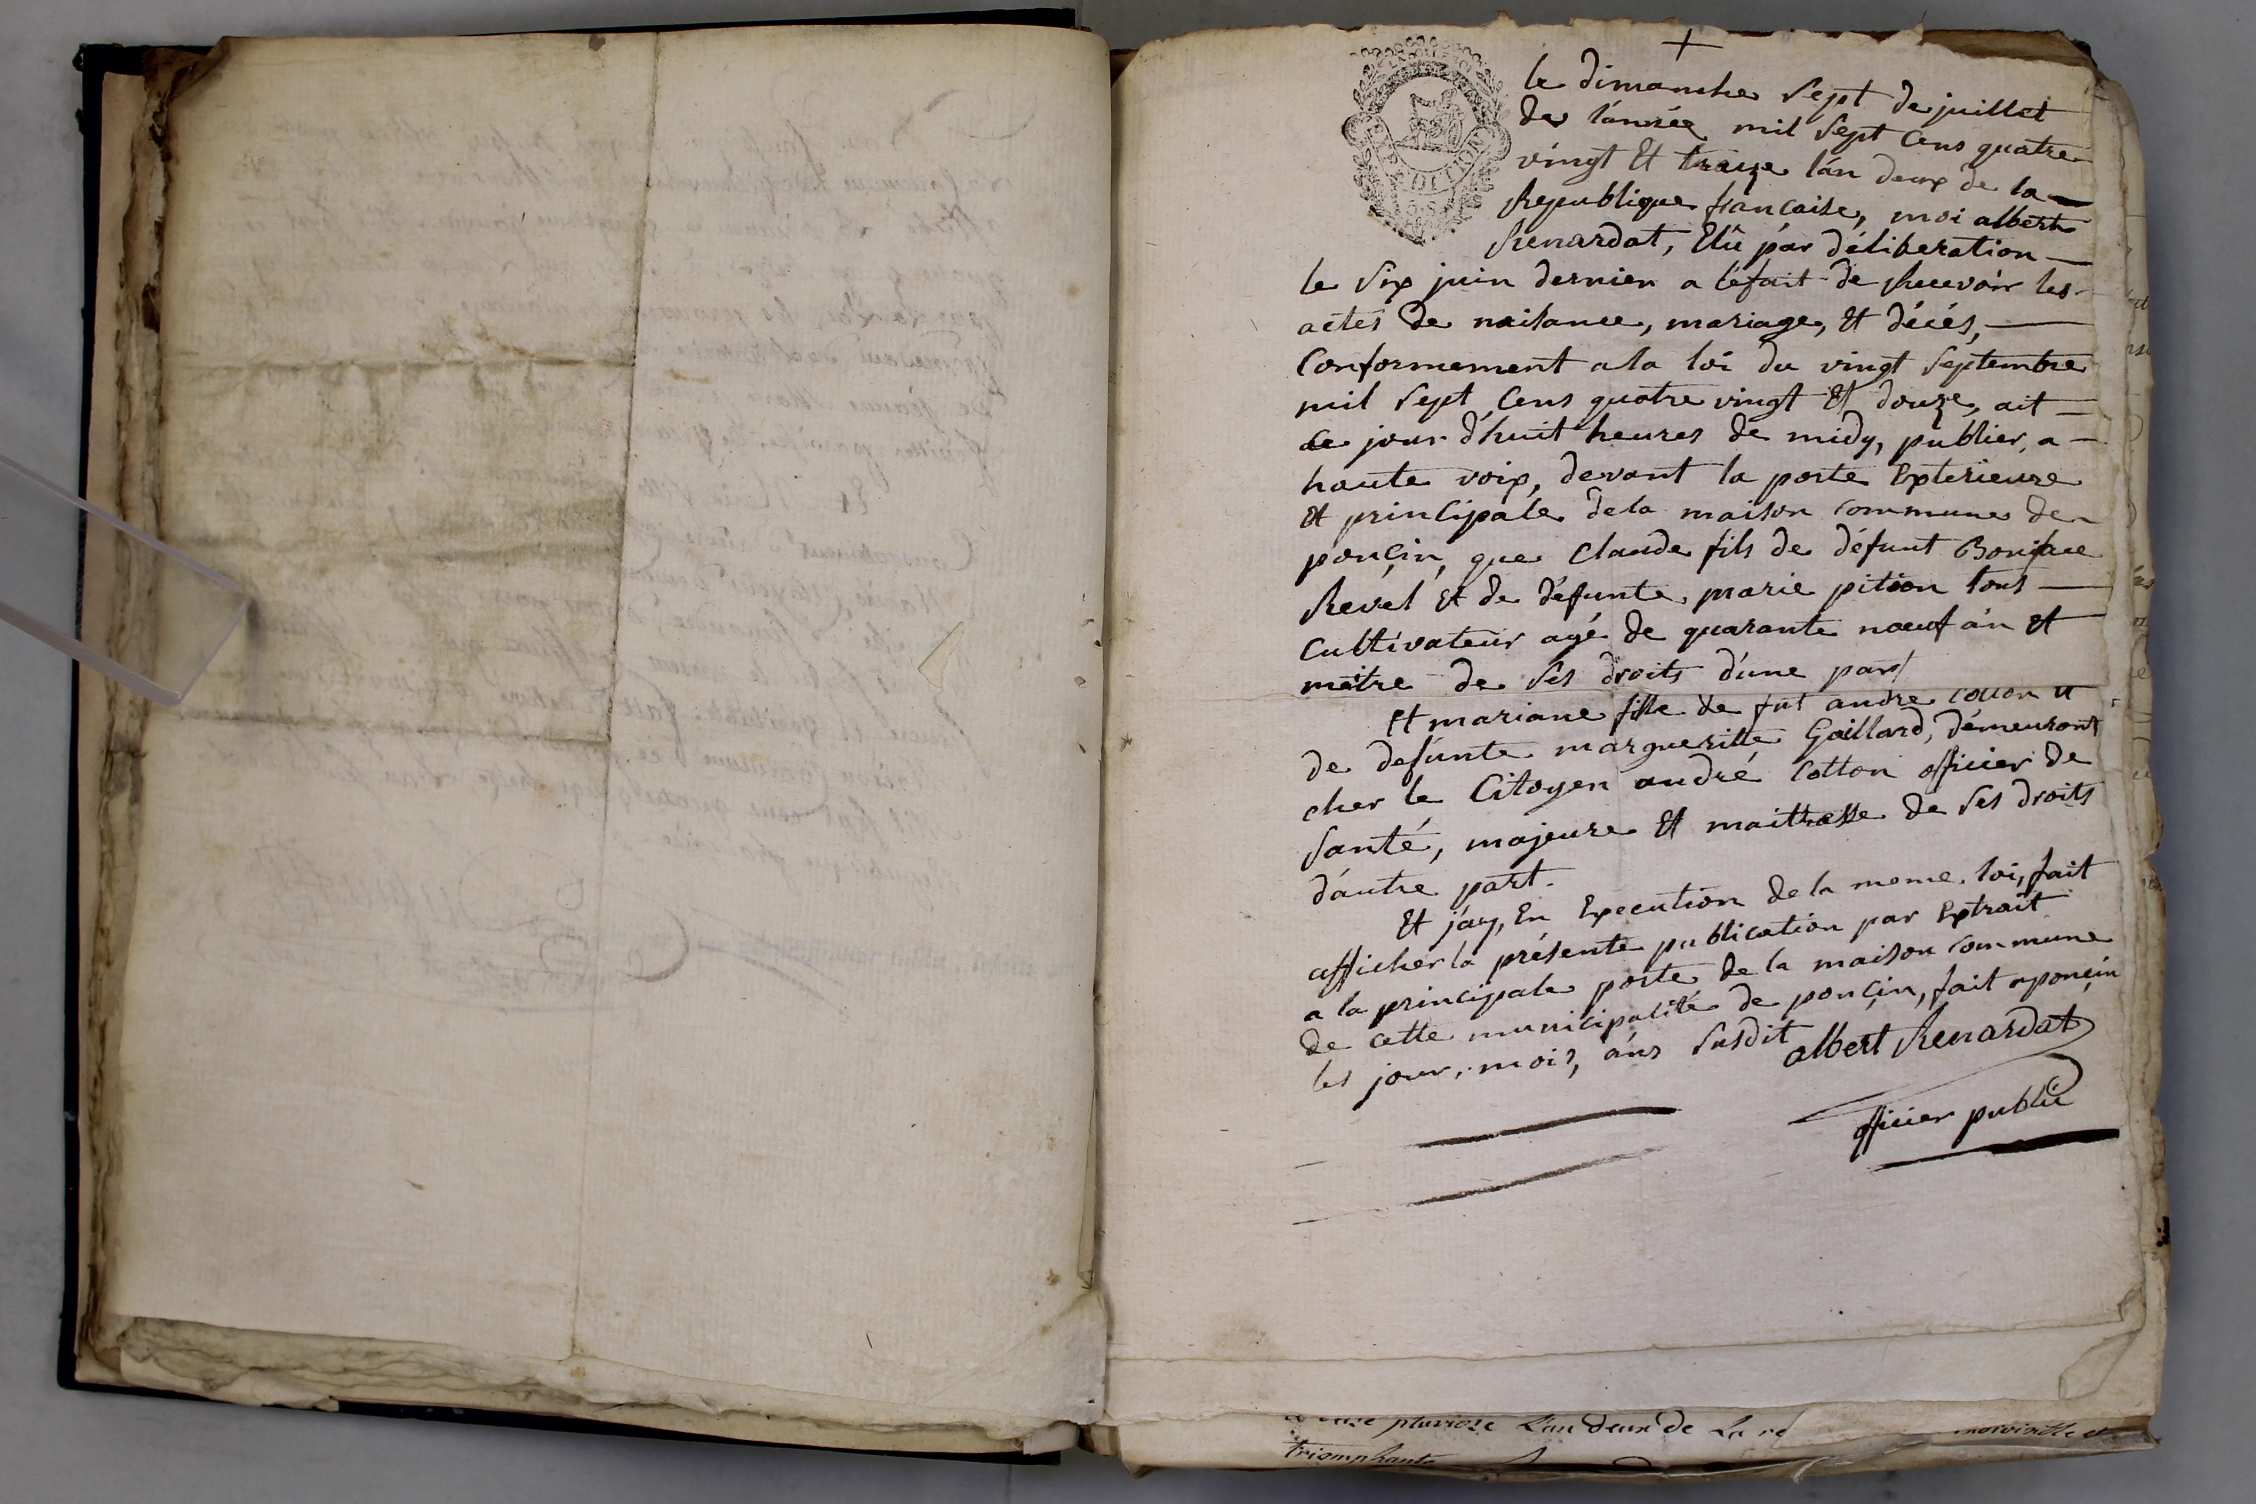 le dimanche sept de juillet
de l'année mil sept cens quatre
vingt et traize l'an deux de la
Republique francaise, moi albert
Renardat, Elû par déliberation
le six juin dernier a l'éfait de Recevoir les
actes de naisance, mariage, Et décés,
Conformement a la loi du vingt septembre
mil sept Cens quatre vingt Et douze, ait
ce jour d'huit heures de midy, publier a
haute voix, devant la porte Exterieure
Et principale de la maison commune de
ponçin, que Claude fils de défunt Boniface
Revel Et de défunte marie pition tous
Cultivateur agé de quarante nœuf än Et
maitre de ses droits d'une part
Et mariane fille de fut andre cotton et
de defunte marguerite Gaillard, démeurant
cher le Citoyen andré Cotton officier de
santé, majeure Et maitresse de ses droits
d'autre part.
Et j'ay, En Execution de la meme loi, fait
afficher la présente publication par Extrait
a la principale porte de la maison commune
de cette municipalité de ponçin, fait a ponçin
les jour, mois, ans susdit albert Renardat
officier public
pluviose L'an deux de La
triomphante